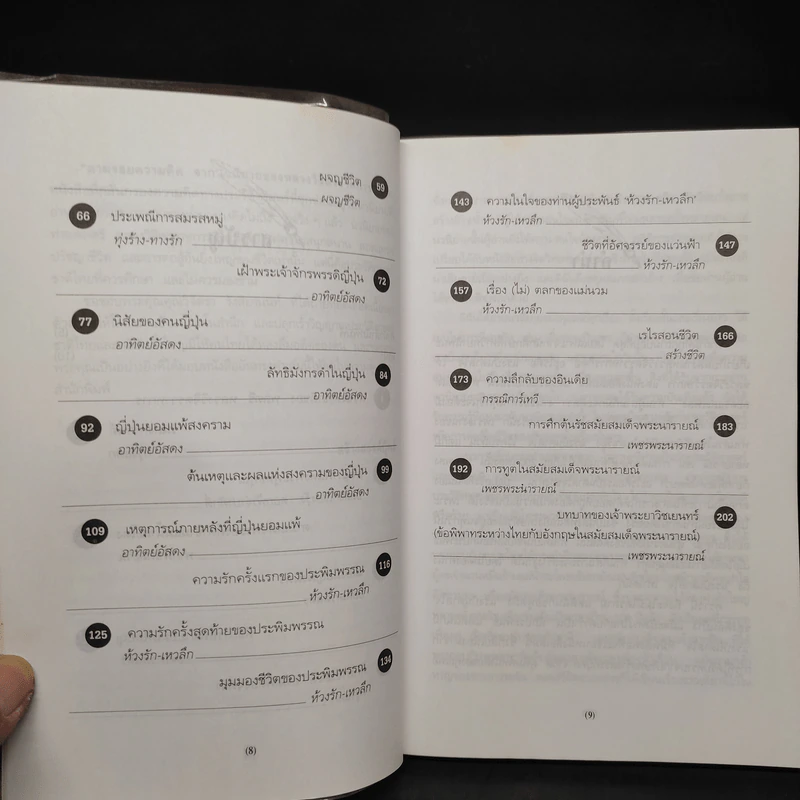 ผจญชีวิต 59
ผจญชีวิต
66 ประเพณีการสมรสหมู่
ทุ่งร้าง-ทางรัก
เฝ้าพระเจ้าจักรพรรดิญี่ปุ่น 72
อาทิตย์อัสดง
77 นิสัยของคนญี่ปุ่น
อาทิตย์อัสดง
ลัทธิมังกรดำในญี่ปุ่น 84
อาทิตย์อัสดง
92 ญี่ปุ่นยอมแพ้สงคราม
อาทิตย์อัสดง
ต้นเหตุและผลแห่งสงครามของญี่ปุ่น 99
อาทิตย์อัสดง
109 เหตุการณ์ภายหลังที่ญี่ปุ่นยอมแพ้
อาทิตย์อัสดง
ความรักครั้งแรกของประพิมพรรณ 116
ห้วงรัก-เหวลึก
125 ความรักครั้งสุดท้ายของประพิมพรรณ
ห้วงรัก-เหวลึก
มุมมองชีวิตของประพิมพรรณ 134
ห้วงรัก-เหวลึก
(8)
143 ความในใจของท่านผู้ประพันธ์ 'ห้วงรัก-เหวลึก'
ห้วงรัก-เหวลึก
ชีวิตที่อัศจรรย์ของแว่นฟ้า 147
ห้วงรัก-เหวลึก
157 เรื่อง (ไม่) ตลกของแม่นวม
ห้วงรัก-เหวลึก
เรไรสอนชีวิต 166
สร้างชีวิต
173 ความลึกลับของอินเดีย
กรรณิการ์เทวี
การศึกต้นรัชสมัยสมเด็จพระนารายณ์ 183
เพชรพระนารายณ์
192 การทูตในสมัยสมเด็จพระนารายณ์
เพชรพระนารายณ์
บทบาทของเจ้าพระยาวิชเยนทร์ 202
(ข้อพิพาทระหว่างไทยกับอังกฤษในสมัยสมเด็จพระนารายณ์)
เพชรพระนารายณ์
(9)